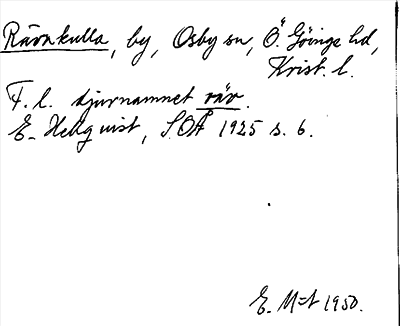 Rävnkulla, by, Osby sn, Ö. Göinge hd,
Krist. l.
F. l. djurnamnet räv.
E. Hellquist, SOÅ 1925 s. 6.
E. M=t 1950.